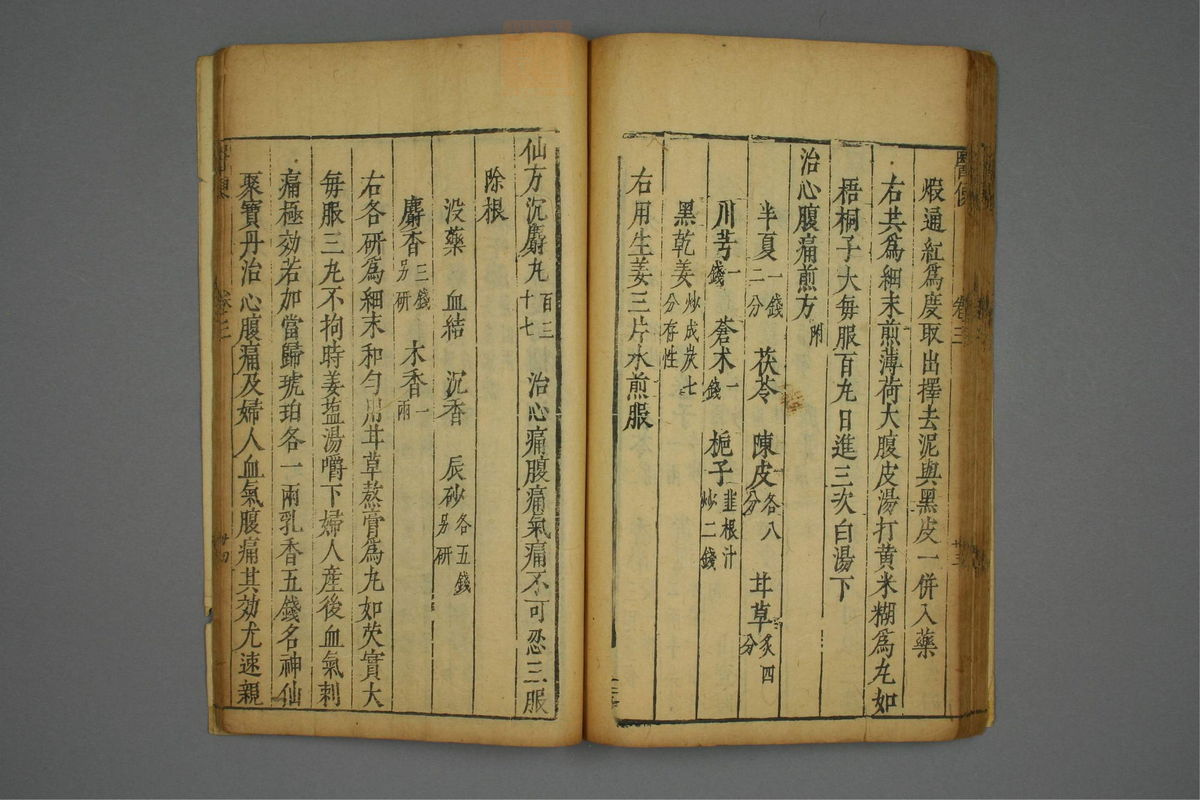 醫便 卷三
煆通紅爲度取出擇去泥與黑皮一併入藥
右共爲細末煎薄荷大腹皮湯打黄米糊爲丸如
梧桐子大每服百丸日進三次白湯下
治心腹痛煎方 附
半夏一錢二分 茯苓 陳皮各八分 甘草炙四分
川芎一錢 蒼术一錢 梔子韭根汁炒二錢
黑乾姜炒成炭七分存性
右用生姜三片水煎服
仙方沉麝丸百三十七 治心痛腹痛氣痛不可忍三服
除根
没藥 血結 沉香 辰砂各五錢另研
麝香三錢另研 木香一兩
右各研爲細末和勻用甘草熬膏爲丸如芡實大
每服三丸不拘時姜塩湯嚼下婦人産後血氣刺
痛極効若加當歸琥珀各一兩乳香五錢名神仙
聚寶丹治心腹痛及婦人血氣腹痛其効尤速親
卷三 廿四